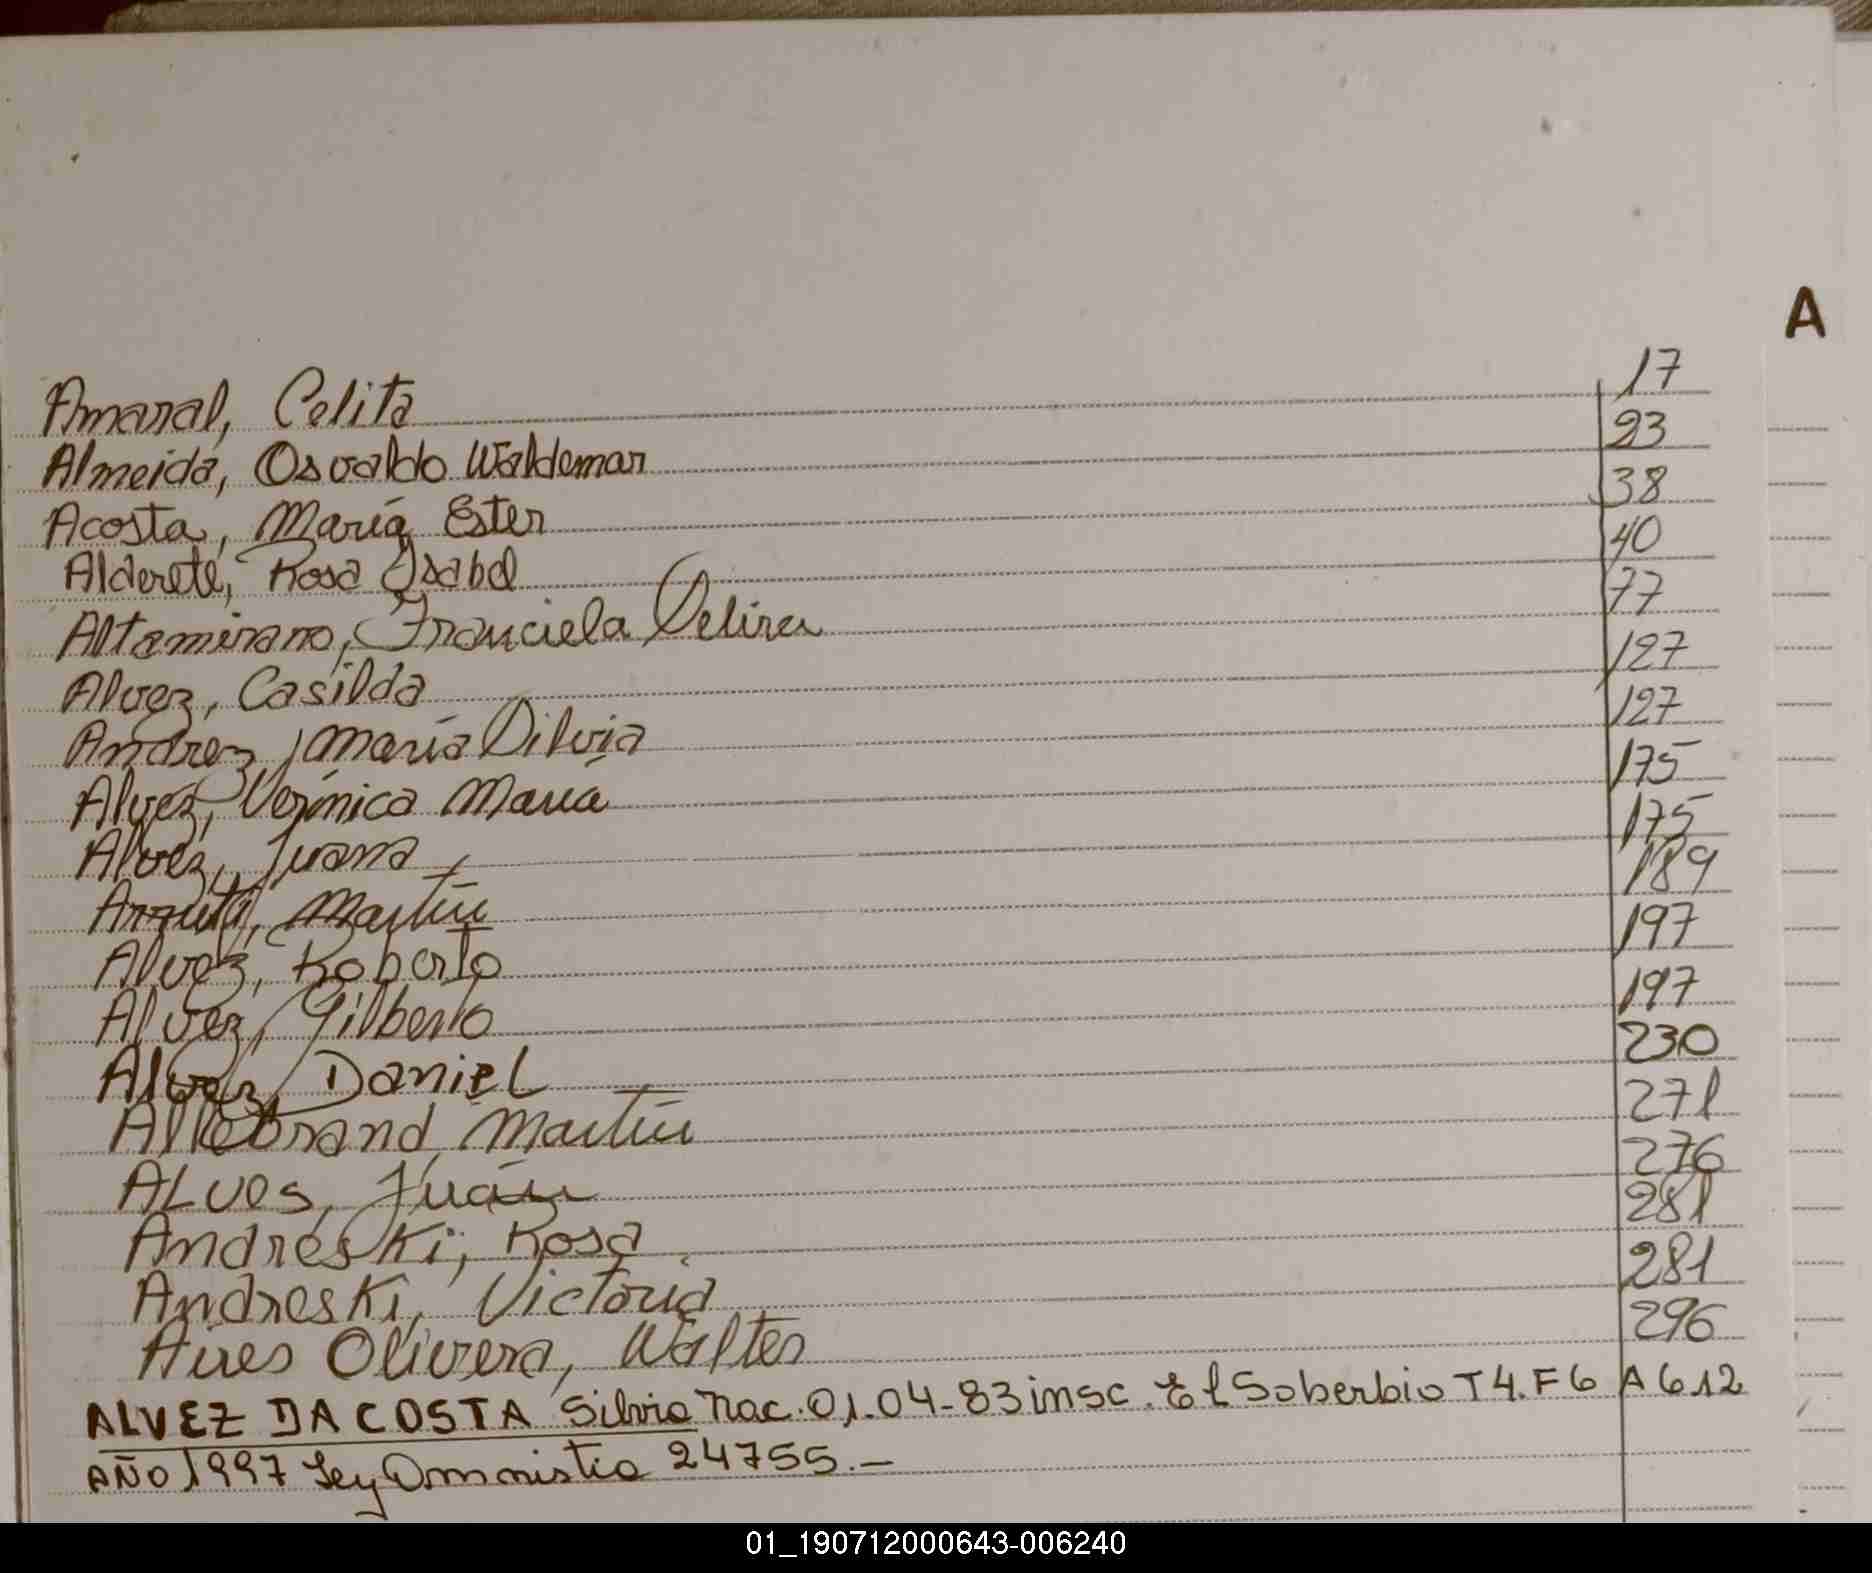 A
Amaral, Celita 17
Almeida, Osvaldo Waldemar 23
Acosta, María Ester 38
Alderete, Rosa Isabel 40
Altamirano, Franciela Celira 77
Alvez, Casilda 127
Andrez, María Silvia 127
Alvez, Verónica María 175
Alvez, Juana 175
Martín 189
Alvez, Roberto 197
Alvez, Gilberto 197
Alvez, Daniel 230
Allebrand, Martín 271
Alves, Juán 276
Andreski, Rosa 281
Andreski, Victoria 281
Aires Olivera, Walter 296
ALVEZ DA COSTA Silvio Nac. 01-04-83 insc. El Soberbio T4. F6 A612
AÑO 1997 Ley Omnistia 24755.-
01_190712000643-006240